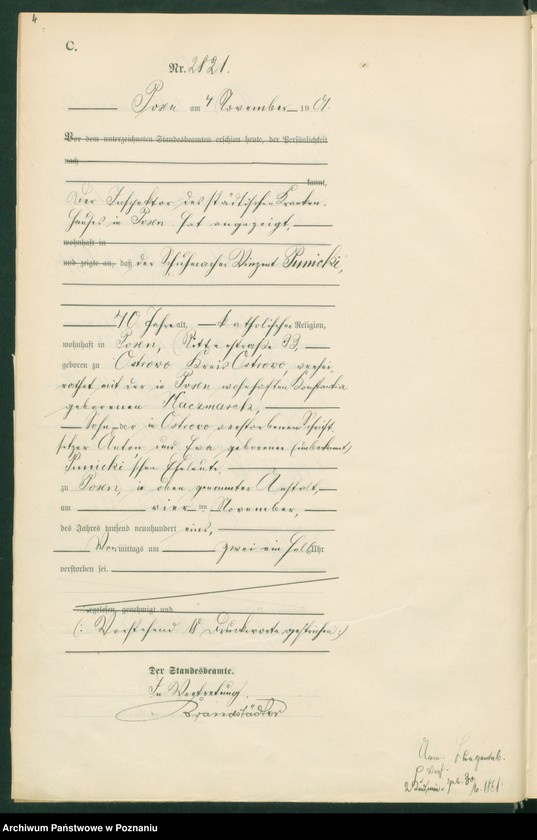 4
C.
Nr. 2821.
Posen am 4 November 1901
Vor dem unterzeichneten Standesbeamten erschien heute, der Persönlichkeit
nach
kannt,
Der Inspektor des städtischen Kranken-
hauses in Posen hat angezeigt,
wohnhaft in
und zeigte an, daß der Schuhmacher Vinzent Punicki,
40 Jahre alt, katholischer Religion,
wohnhaft in Posen, Ritterstraße 33,
geboren zu Ostrowo Kreis Ostrowo, verhei-
rathet mit der in Posen wohnhaften Konstantia
geborenen Kaczmarek,
Sohn der in Ostrowo verstorbenen Schrift-
setzer Anton und Eva geborener (unbekannt)
Punicki'schen Eheleute,
zu Posen, in oben genannter Anstalt,
am vier ten November,
des Jahres tausend neunhundert eins,
Vormittags um zwei ein halb Uhr
verstorben sei.
Vorgelesen, genehmigt und
(: Vorstehend Druckworte gestrichen :)
Der Standesbeamte.
In Vertretung.
Brandstädter
geb. 30 1861